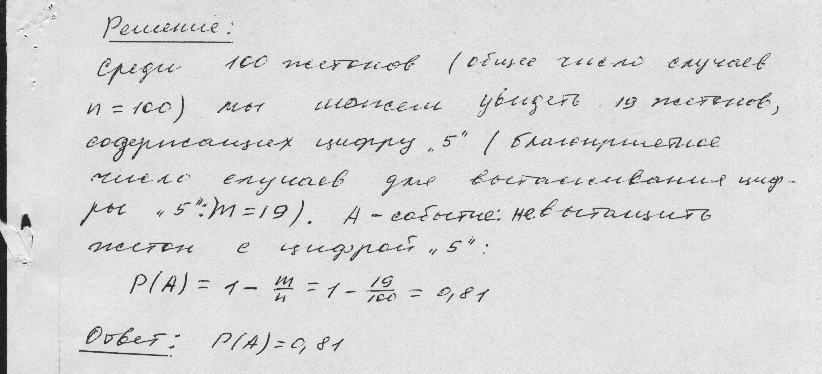 Решение:
Среди 100 жетонов (общее число случаев
n = 100) мы можем увидеть 19 жетонов,
содержащих цифру „5" (благоприятное
число случаев для вытаскивания циф-
ры „5": m = 19). A - событие: не вытащить
жетон с цифрой „5":
P(A) = 1 - m/n = 1 - 19/100 = 0,81
Ответ: P(A) = 0,81